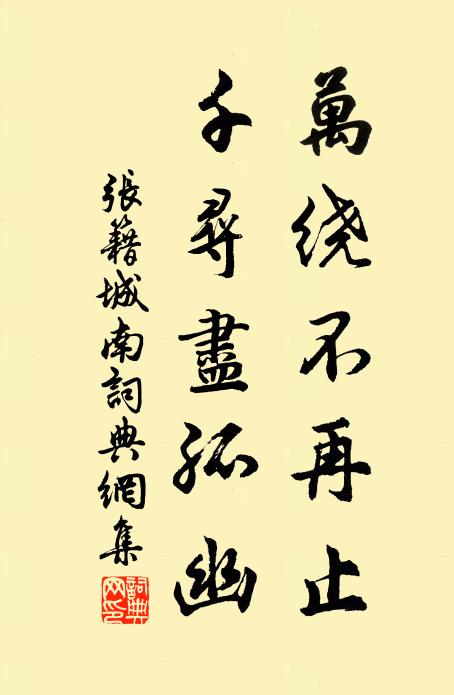 萬绕不再止
千尋盡孤幽
張籍城南詞典網集
詞典網印